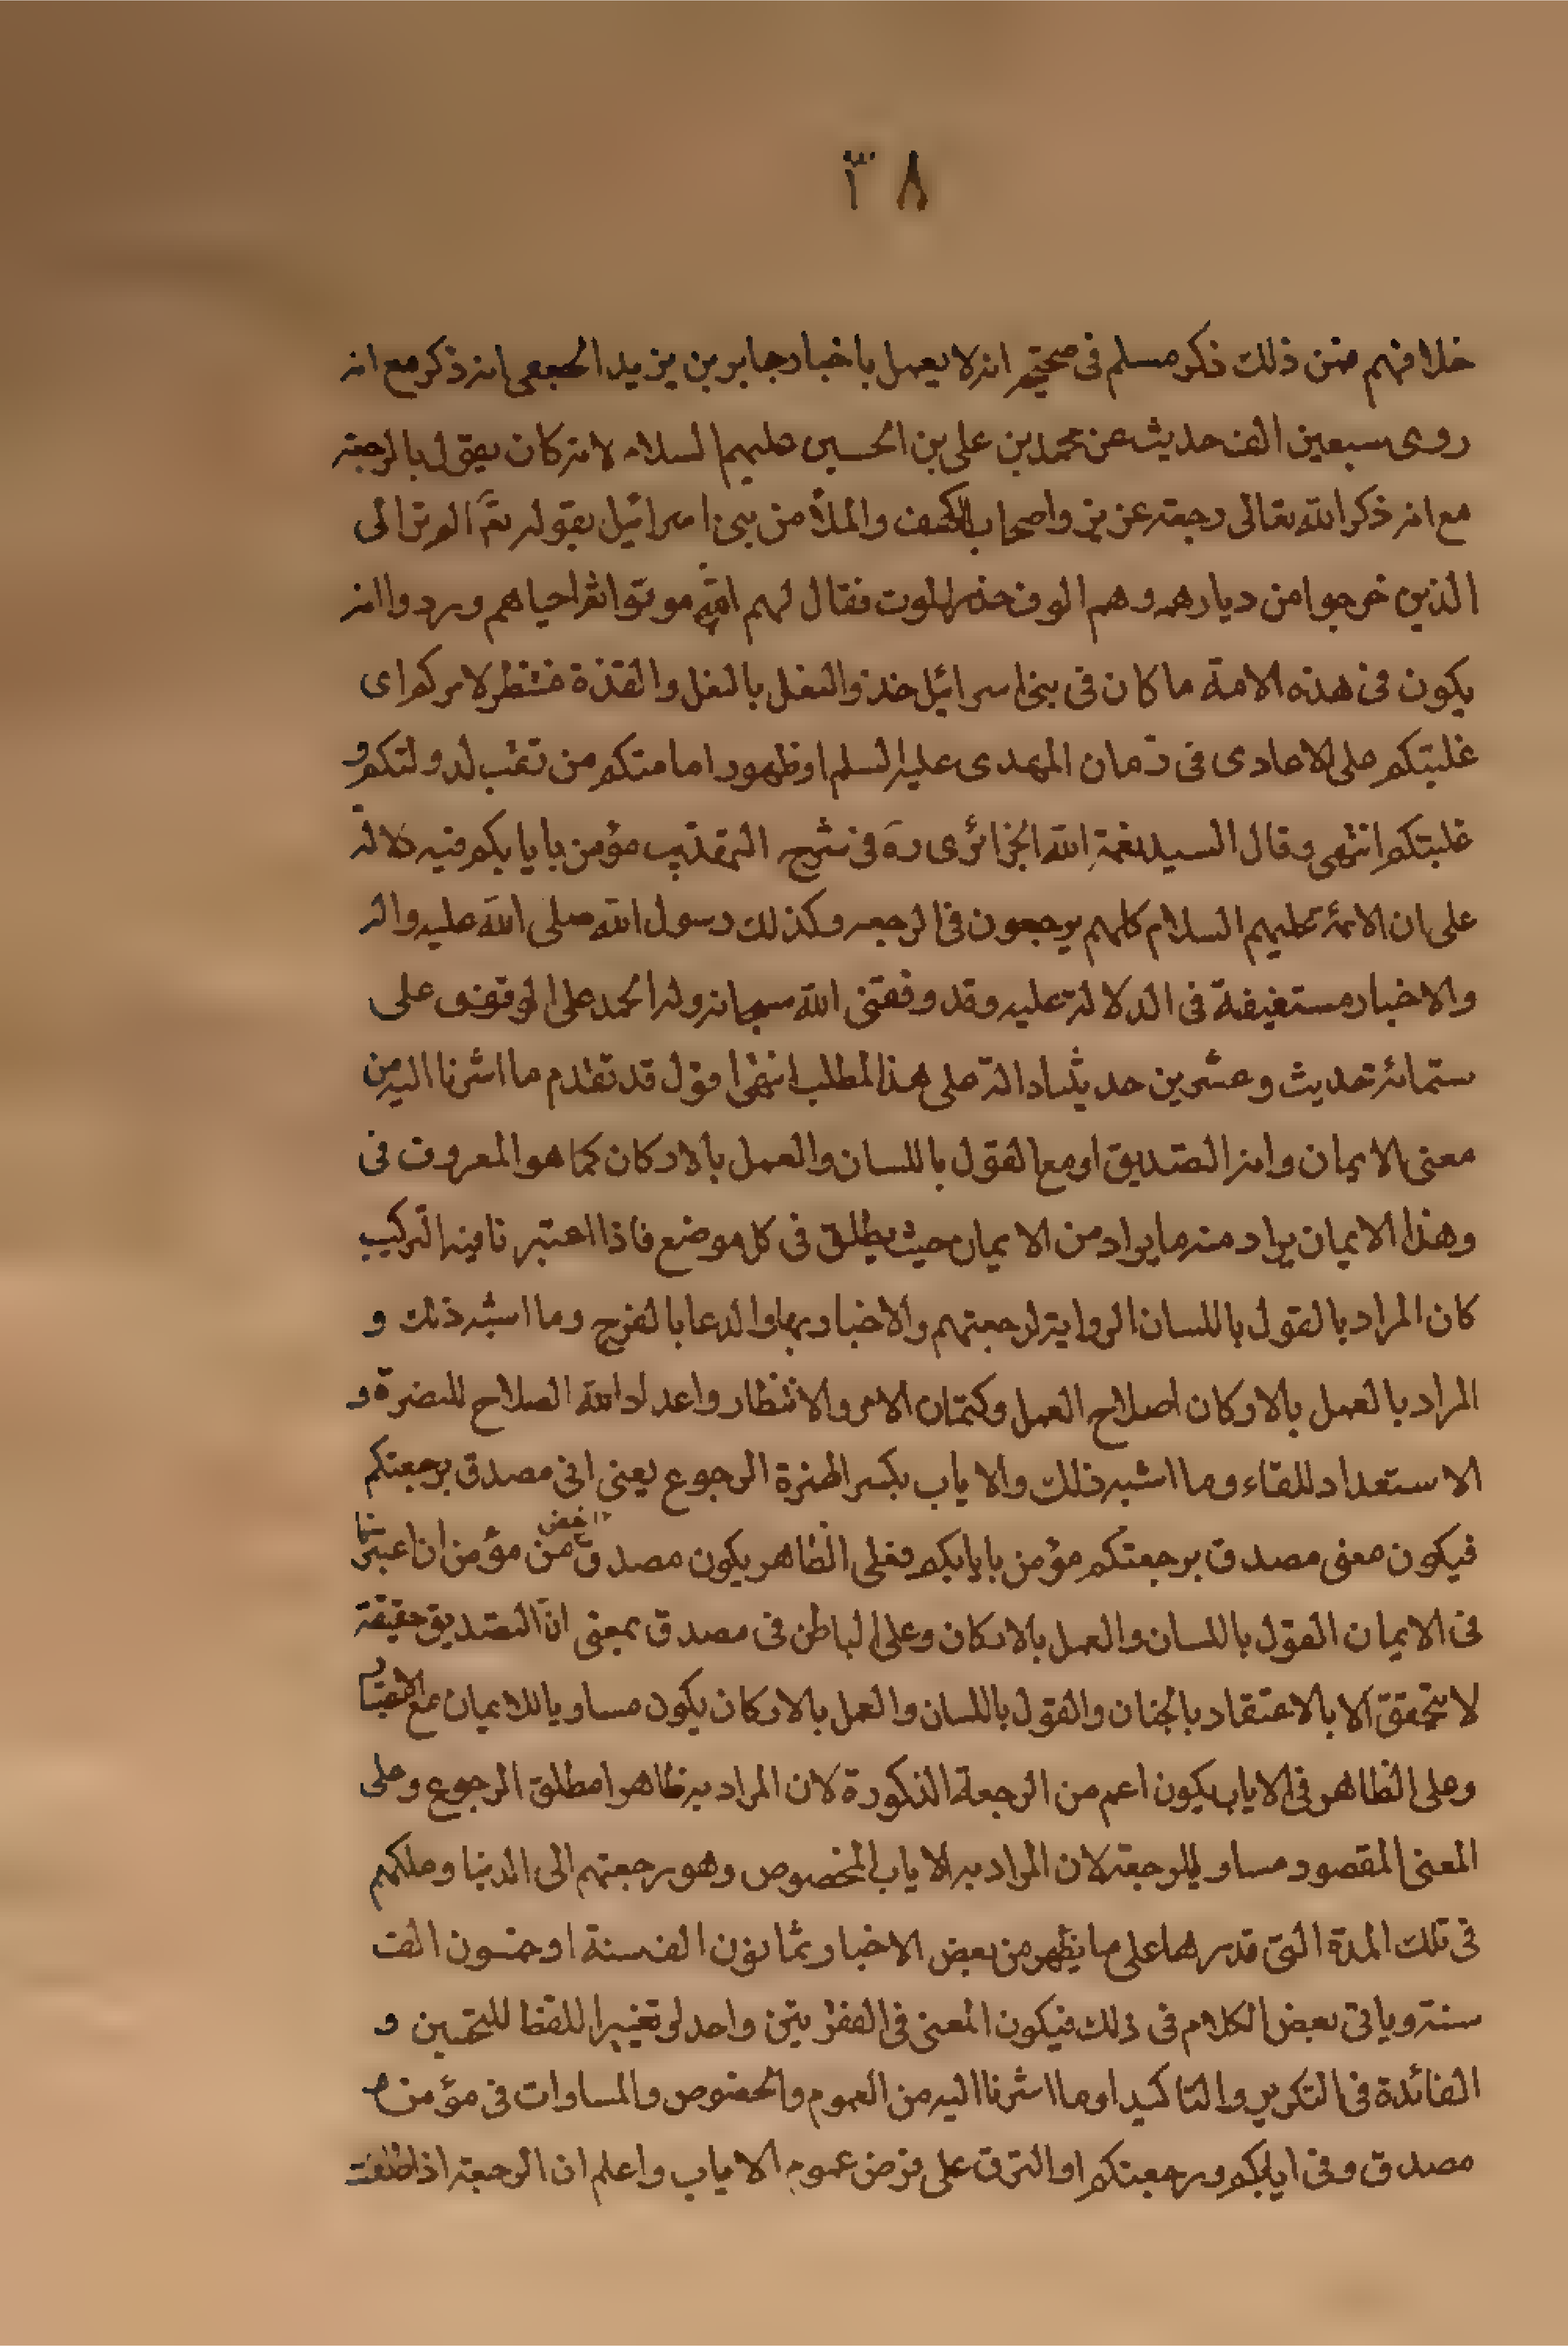 ٣٨
خلافهم فمن ذلك ذكر مسلم فى صحيحه انه لا يعمل باخبار جابر بن يزيد الجعفى انه ذكر مع انه
روى سبعين الف حديث عن محمد بن على بن الحسين عليهم السلام لانه كان يقول بالرجعة
مع انه ذكر الله تعالى رجعة عزيز واصحاب الكهف والملأ من بنى اسرائيل بقوله تع الم تر الى
الذين خرجوا من ديارهم وهم الوف حذر الموت فقال لهم الله موتوا ثم احياهم وردوا انه
يكون فى هذه الامة ما كان فى بنى اسرائيل حذو النعل بالنعل والقذة منتظر لامركم اى
غلبتكم على الاعادى فى زمان المهدى عليه السلم او ظهور امامتكم من تقب لدولتكم و
غلبتكم انتهى وقال السيد نعمة الله الجزائرى ره فى شرح التهذيب مؤمن بايابكم فيه دلالة
على ان الائمة عليهم السلام كلهم يرجعون فى الرجعه وكذلك رسول الله صلى الله عليه واله
والاخبار مستفيضة فى الدلالة عليه وقد وفقنى الله سبحانه وله الحمد على الوقوف على
ستمائة حديث وعشرين حديثا دالة على هذا المطلب انتهى اقول قد تقدم ما اشرنا اليه من
معنى الايمان وانه التصديق او مع القول باللسان والعمل بالاركان كما هو المعروف فى
وهذا الايمان يراد منه ما يراد من الايمان حيث يطلق فى كل موضع فاذا اعتبرنا فيه التركيب
كان المراد بالقول باللسان الرواية لرجعتهم والاخبار بها والدعا بالفرج وما اشبه ذلك و
المراد بالعمل بالاركان اصلاح العمل وكتمان الامر والانتظار واعداد الة الصلاح للنصرة و
الاستعداد للقاء وما اشبه ذلك والاياب بكسر الهمزة الرجوع يعنى انى مصدق برجعتكم
فيكون معنى مصدق برجعتكم مؤمن بايابكم فعلى الظاهر يكون مصدق اخص من مؤمن ان اعتبرنا
فى الايمان القول باللسان والعمل بالاركان وعلى الباطن فى مصدق بمعنى ان التصديق حقيقة
لا يتحقق الا بالاعتقاد بالجنان والقول باللسان والعمل بالاركان يكون مساويا للايمان مع الاعتبار
وعلى الظاهر فى الاياب يكون اعم من الرجعة المذكورة لان المراد به ظاهرا مطلق الرجوع وعلى
المعنى المقصود مساو للرجعة لان المراد به الاياب المخصوص وهو رجعتهم الى الدنيا وملكهم
فى تلك المدة التى قدرها على ما يظهر من بعض الاخبار ثمانون الف سنة او خمسون الف
سنة وياتى بعض الكلام فى ذلك فيكون المعنى فى الفقرتين واحد لو تغييرا للفظ للتحسين و
الفائدة فى التكرير والتاكيد او ما اشرنا اليه من العموم والخصوص والمساوات فى مؤمن و
مصدق وفى ايابكم ورجعتكم او الترق على فرض عموم الاياب واعلم ان الرجعة اذا اطلقت